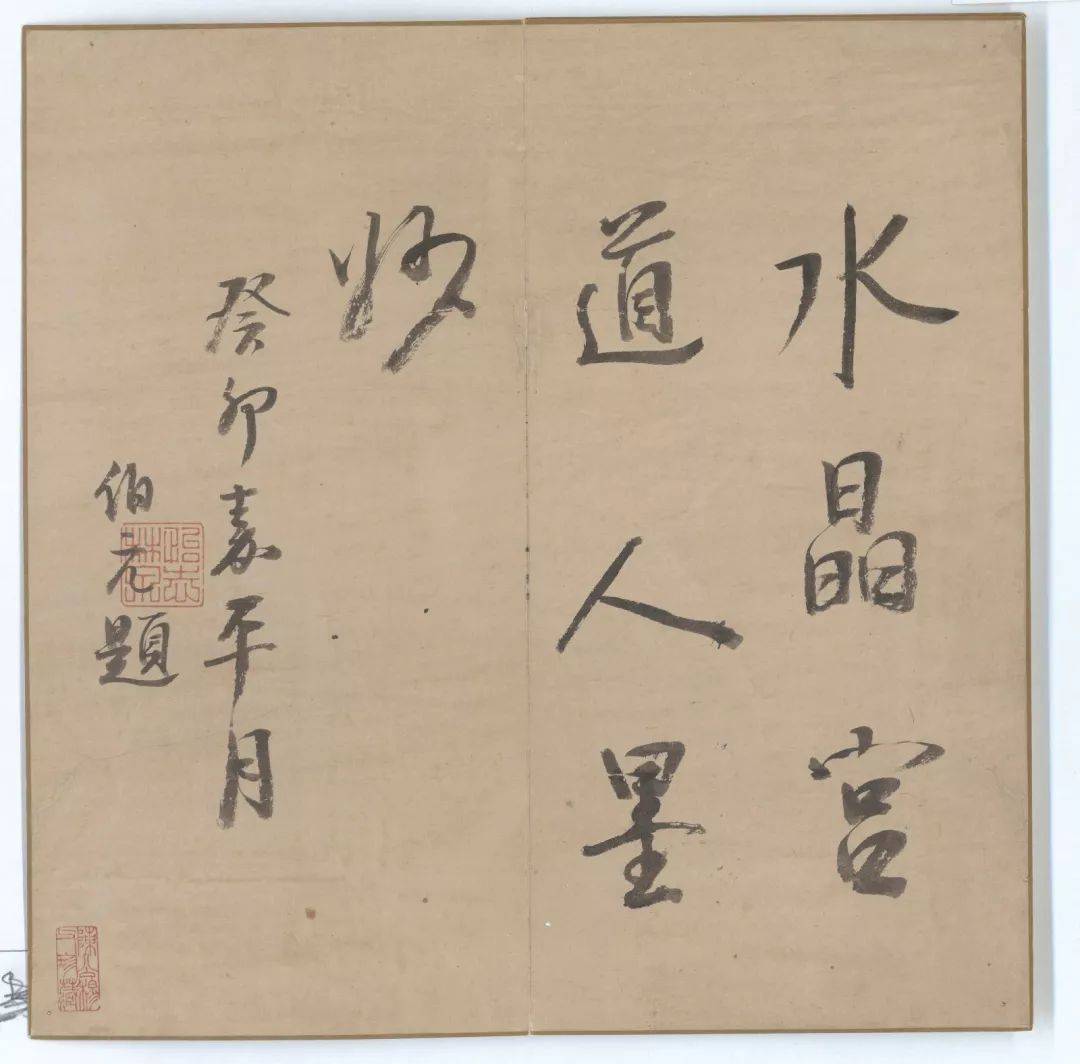 水晶宫
道人墨
妙
癸卯嘉平月
伯元題